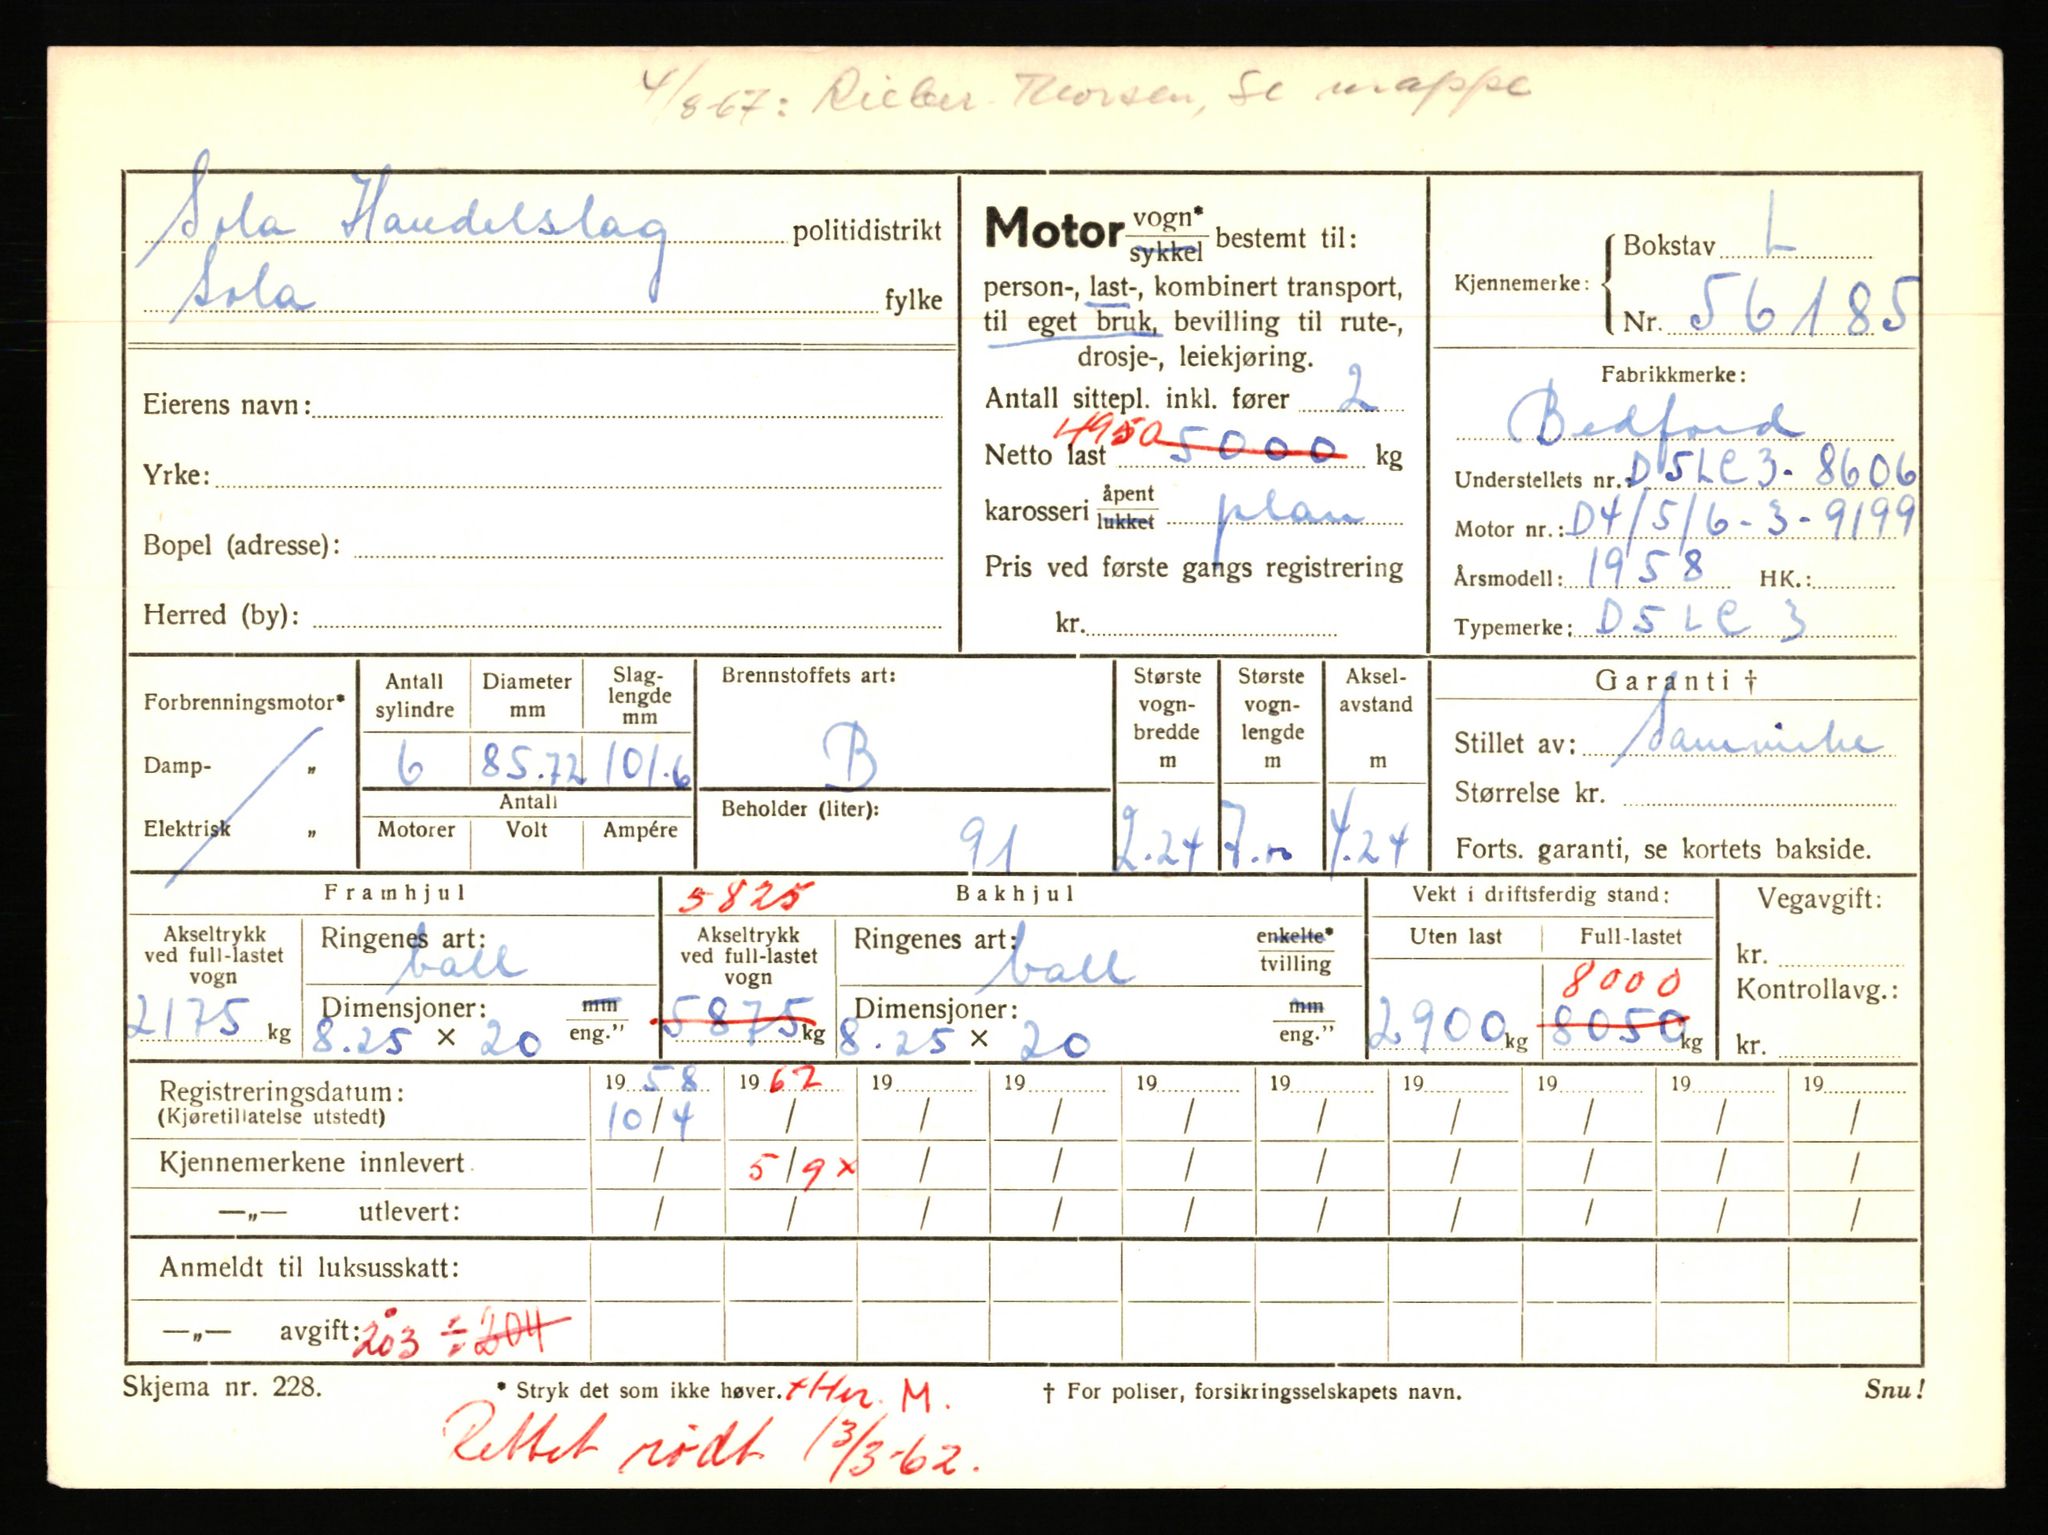 4/8-67: Rieber-Thorsen, Se mappe
Sola Handelslag politidistrikt
Sola fylke
Eierens navn:
Yrke:
Bopel (adresse):
Herred (by):
Motor vogn* / sykkel bestemt til:
person-, last-, kombinert transport,
til eget bruk, bevilling til rute-,
drosje-, leiekjøring.
Antall sittepl. inkl. fører 2
Netto last 4950 5000 kg
karosseri åpent / lukket plan
Pris ved første gangs registrering
kr.
Kjennemerke: Bokstav L
Nr. 56185
Fabrikkmerke:
Bedford
Understellets nr.: D5LC3-8606
Motor nr.: D4/5/6-3-9199
Årsmodell: 1958 HK.:
Typemerke: D5LC3
Forbrenningsmotor*
Damp- "
Elektrisk "
Antall sylindre 6
Diameter mm 85.72
Slaglengde mm 101.6
Antall
Motorer Volt Ampére
Brennstoffets art:
B
Beholder (liter):
91
Største vogn-bredde m 2.24
Største vogn-lengde m 7.00
Aksel-avstand m 4.24
Garanti †
Stillet av: Samvirke
Størrelse kr.
Forts. garanti, se kortets bakside.
Framhjul
Akseltrykk ved full-lastet vogn
2175 kg
Ringenes art: ball
Dimensjoner: mm / eng."
8.25 × 20
5825 Bakhjul
Akseltrykk ved full-lastet vogn
5875 kg
Ringenes art: ball enkelte* / tvilling
Dimensjoner: mm / eng."
8.25 × 20
Vekt i driftsferdig stand:
Uten last Full-lastet
8000
2900 kg 8050 kg
Vegavgift:
kr.
Kontrollavg.:
kr.
Registreringsdatum: 1958 1962 19 19 19 19 19 19 19 19
(Kjøretillatelse utstedt) 10/4 / / / / / / / / /
Kjennemerkene innlevert / 5/9 x / / / / / / / /
—„— utlevert: / / / / / / / / / /
Anmeldt til luksusskatt:
—„— avgift: 203 ÷ 204
Skjema nr. 228. * Stryk det som ikke høver. † For poliser, forsikringsselskapets navn. Snu!
Rettet rødt 13/3-62.